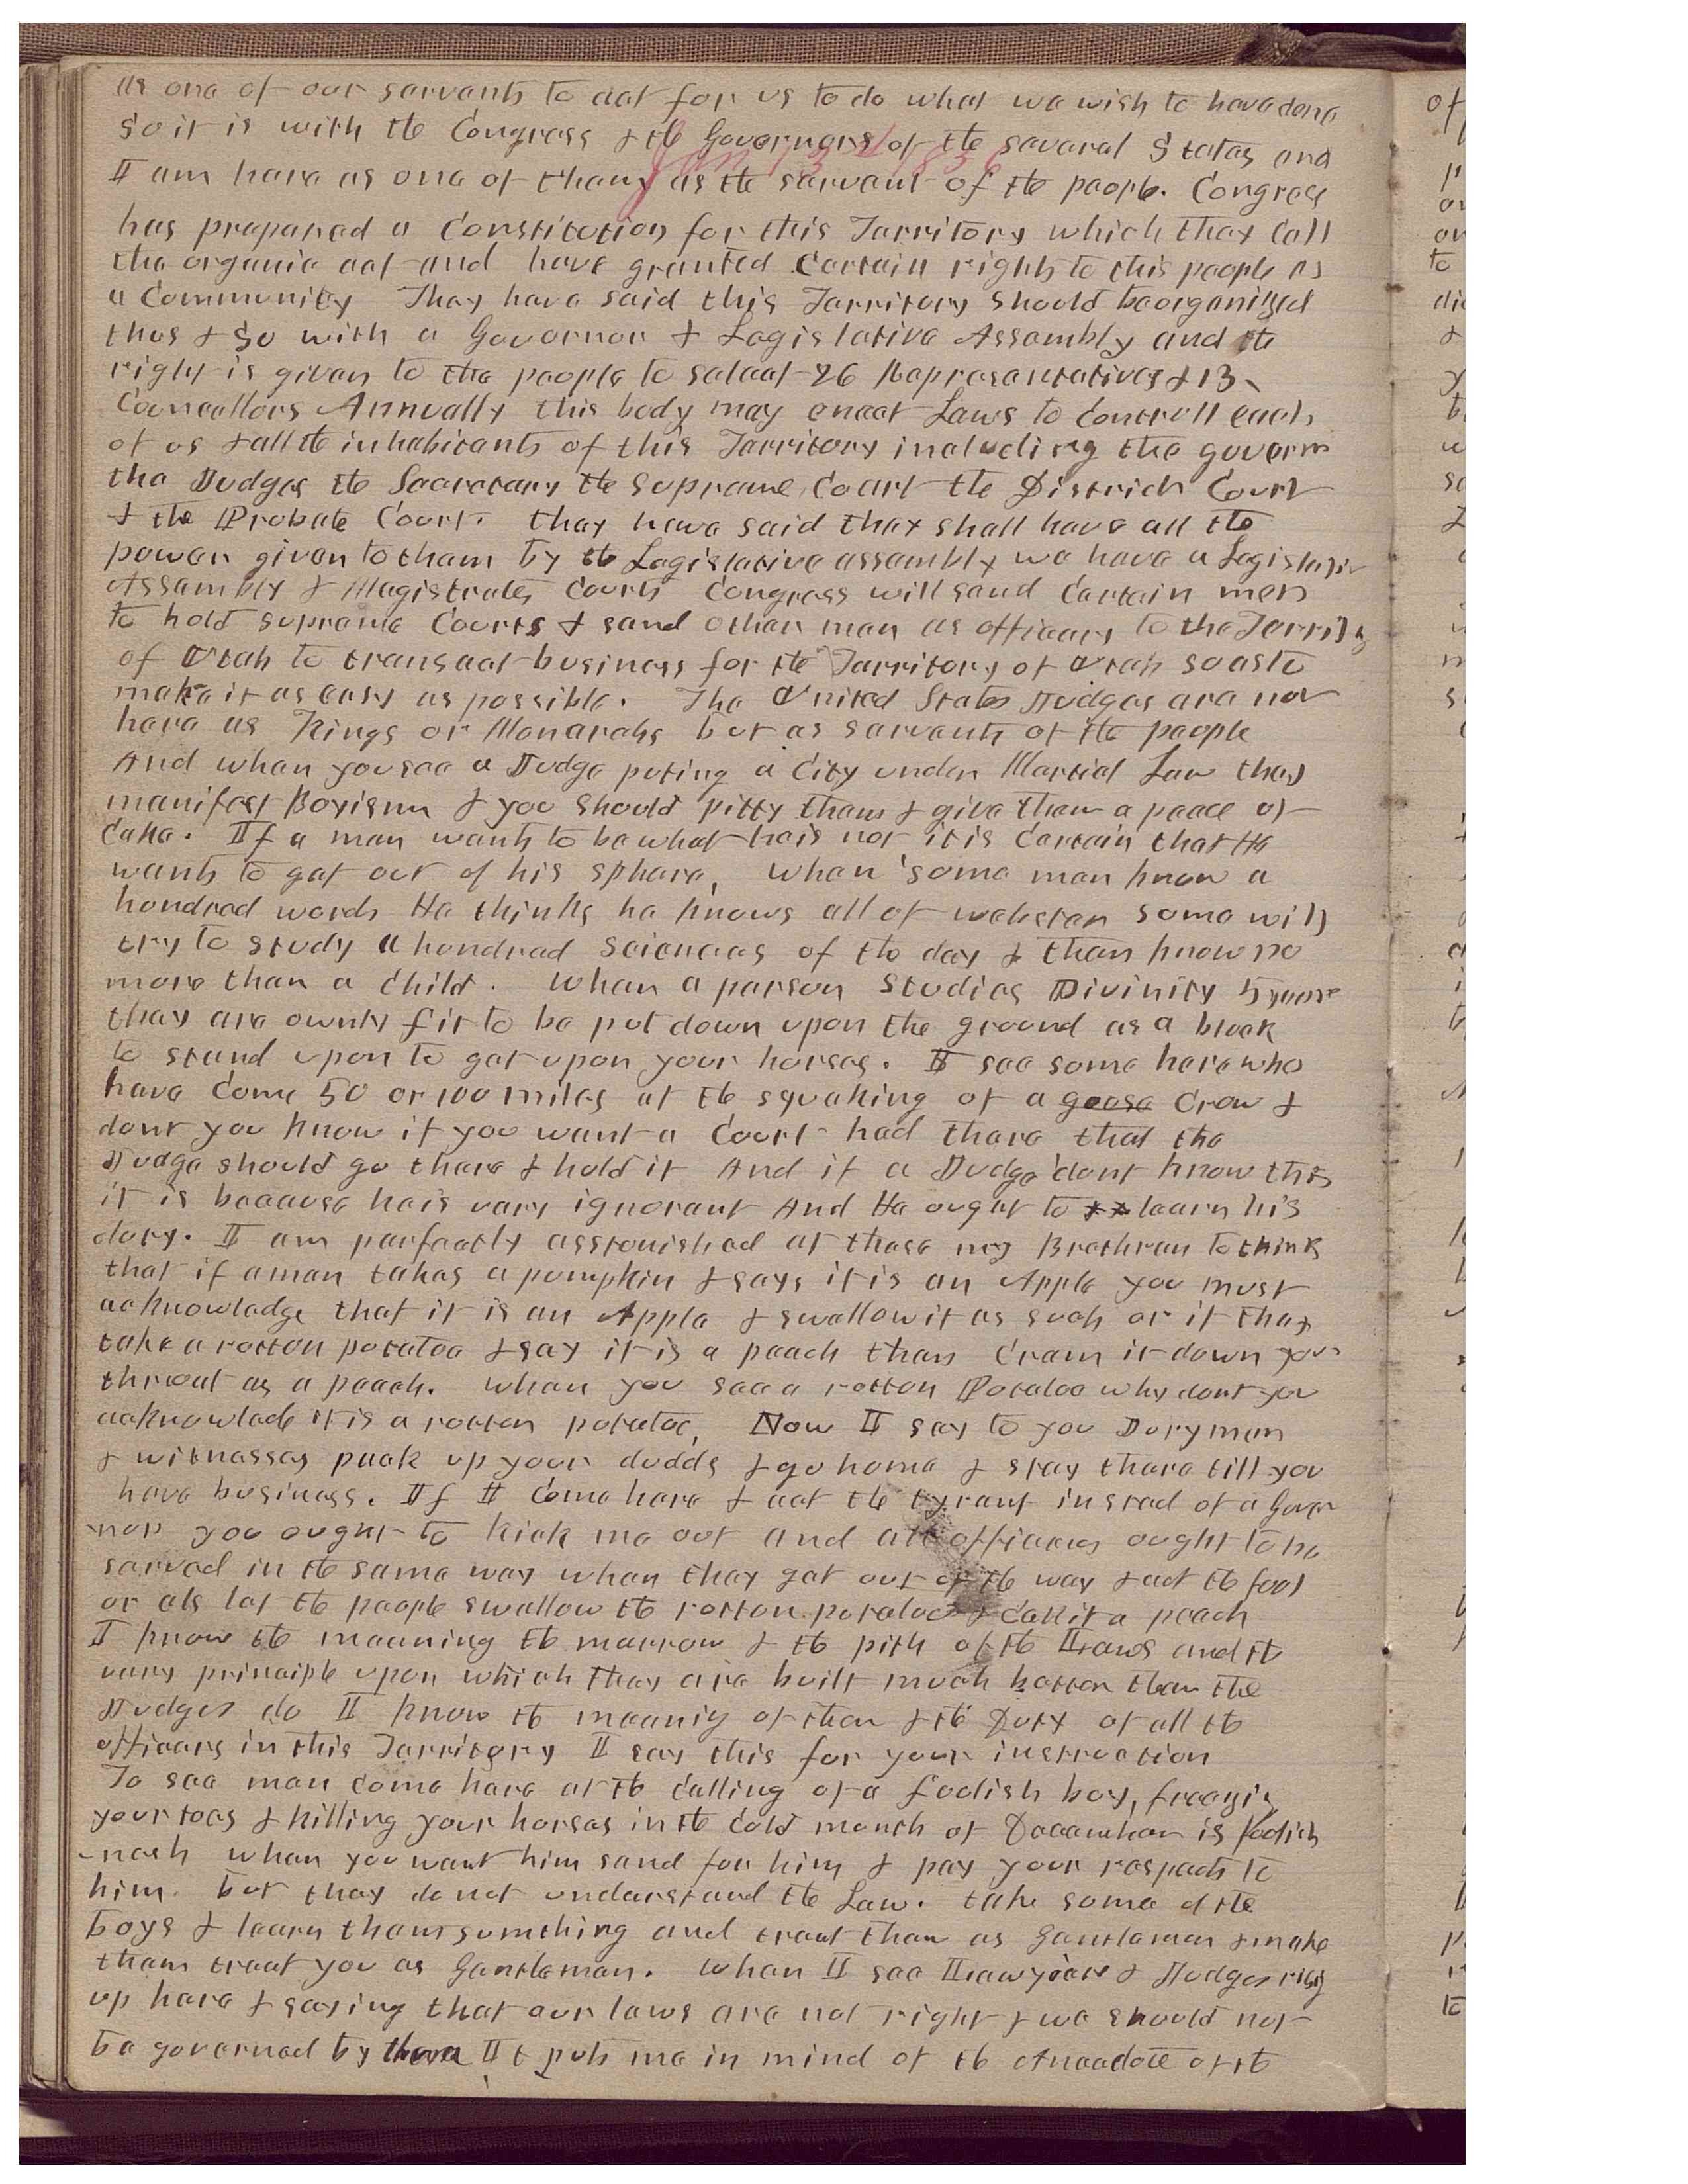 as one of our servants to act for us to do what we wish to have done
So it is with the Congress & the Governors of the several States and
I am here as one of them as the servant of the people. Congress
Jan 13th 1856
has prepared a Constitution for this Territory which they Call
the organic act and have granted Certain rights to this people as
a Community They have said this Territory should be organized
thus & So with a Governor & Legislative Assembly and the
right is given to the people to select 26 Representatives & 13
Councellors Annually this body may enact Laws to Controll each
of us & all the inhabitants of this Territory including the govern
the Judges the Secretary the Supreme Court the District Court
& the Probate Court. they have said they shall have all the
power given to them by the Legislative assembly we have a Legislativ
Assembly & Magistrates Courts Congress will send Certain men
to hold supreme Courts & send other men as officers to the Territy
of Utah to transact business for the Territory of Utah so as to
make it as easy as possible. The United States Judges are not
here as Kings or Monarchs but as servants of the people
And when you see a Judge puting a City under Martial Law they
manifest Boyism & you should pitty them & give them a peace of
Cake. If a man wants to be what he is not it is Certain that He
wants to get out of his sphere, when some men know a
hundred words He thinks he knows all of webster some will
try to study a hundred sciences of the day & then know no
more than a Child. When a person Studies Divinity 5 years
they are ownly fit to be put down upon the ground as a block
to stand upon to get upon your horses. I see some here who
have Come 50 or 100 miles at the squaking of a goose Crow &
dont you know if you want a Court had there that the
Judge should go there & hold it And if a Judge dont know this
it is because he is very ignorant And He ought to learn his
duty. I am perfectly asstonished at these my Brethren to think
that if a man takes a pumpkin & says it is an Apple you must
acknowledge that it is an Apple & swallow it as such or if they
take a rotten potatoe & say it is a peach then Cram it down your
throat as a peach. When you see a rotten Potatoe why dont you
acknowlede it is a rotten potatoe, Now I say to you Jurymen
& witnesses pack up your dudds & go home & stay there till you
have business. If I Come here & act the tyrant in stead of a Gover
-nor you ought to kick me out and all officers ought to be
served in the same way when they get out of the way & act the fool
or els let the people swallow the rotton potatoe & Call it a peach
I know the meaning the marrow & the pith of the Laws and the
very principle upon which they are built much better than the
Judges do I know the meanig of them & the Duty of all the
officers in this Territory I say this for your instruction
To see men Come here at the Calling of a foolish boy, freezig
your toes & killing your horses in the Cold month of December is foolish
-nesh when you want him send for him & pay your respects to
him. but they do not understand the Law. take some of the
boys & learn them sumthing and treat them as Gentlemen & make
them treat you as Gentlemen. When I see Lawyers & Judges risig
up here & saying that our laws are not right & we should not
be governed by them It puts me in mind of the Anecdote of the